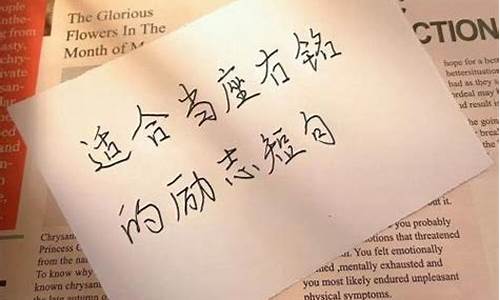 The Glorious
Flowers In The
Month of
CTION
适合当座右铭
的励志短句
hope for a
had as they
ordeal may
Princess
from the
To know why
known chrysan
you probably
that threatened
You felt emotionally
,mentally exhausted and
you most likely endured unpleasant
physical symptoms.